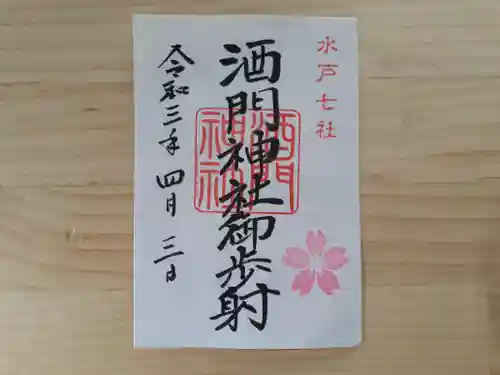 水戸七社
酒門神社御歩射
酒門
神社
令和三年 四月 三日